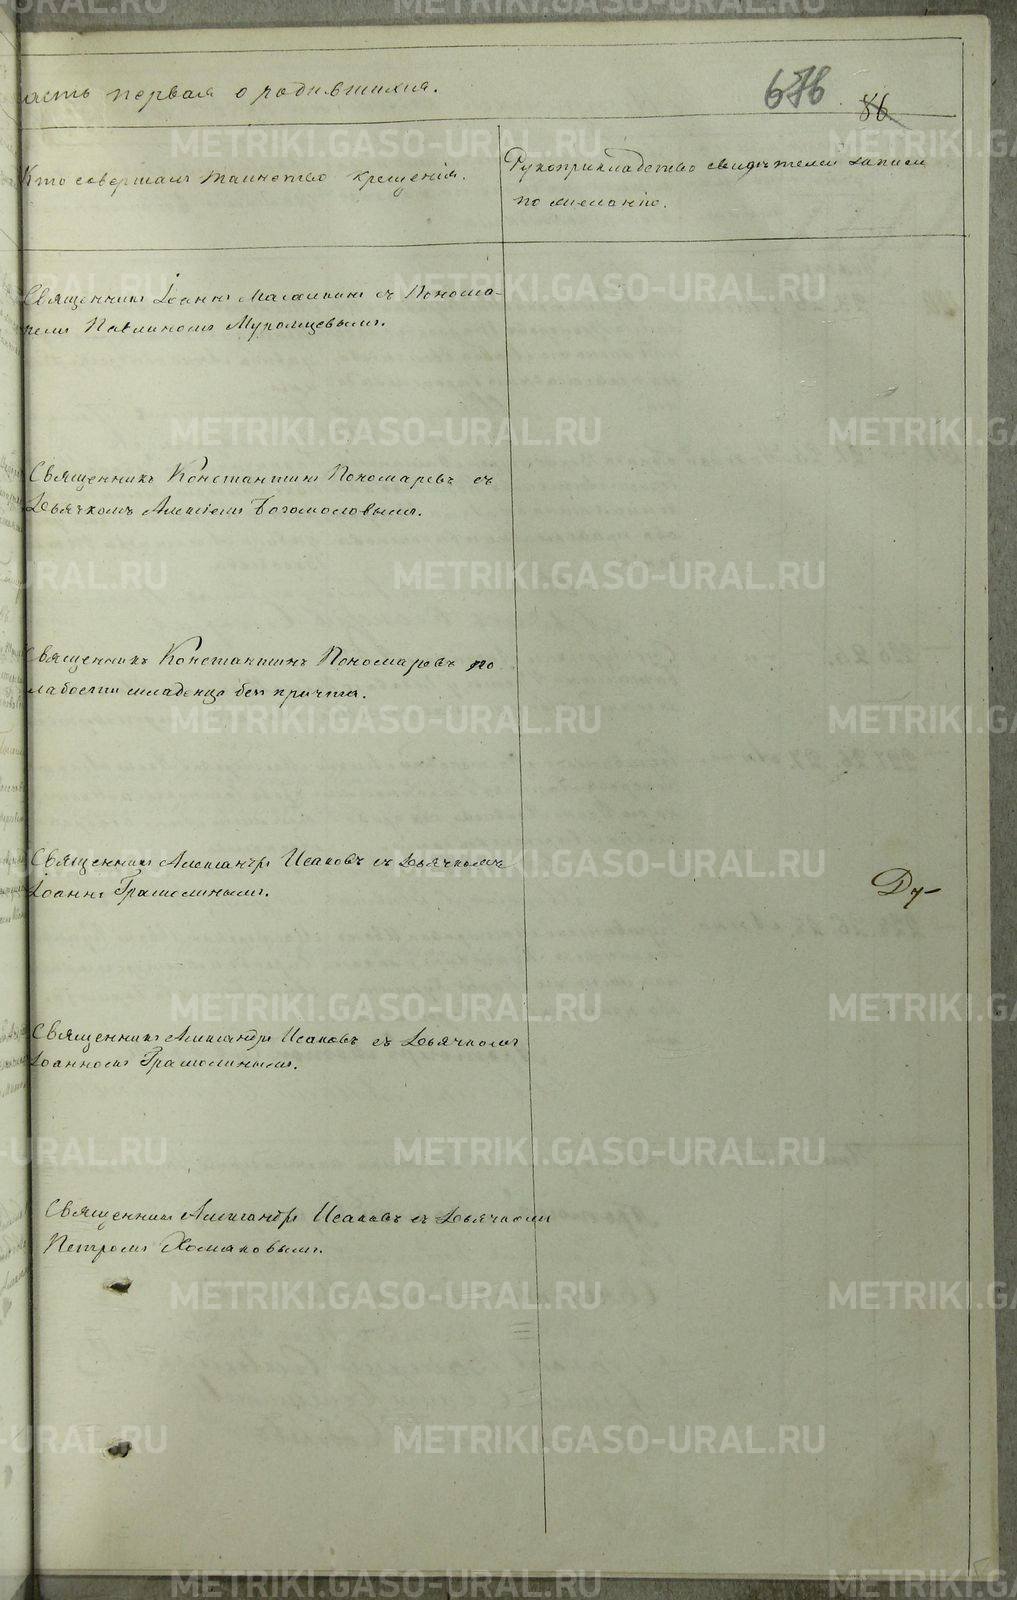 асть первая о родившихся.
676
86
Кто совершалъ таинство крещенія.
Рукоприкладство свидѣтелей записи
по желанію.
Священникъ Іоаннъ съ Понома-
ремъ Павлиномъ Муромцевымъ.
Священникъ Константинъ Пономаревъ съ
Дьячкомъ Алексіемъ Богомоловымъ.
Священникъ Константинъ Пономаревъ по
слабости младенца безъ причта.
Священникъ Александръ Исаковъ съ Дьячкомъ
Іоанномъ Грамолинымъ.
Ду-
Священникъ Александръ Исаковъ съ Дьячкомъ
Іоанномъ Грамолинымъ.
Священникъ Александръ Исаковъ съ Дьячкомъ
Петромъ Хомяковымъ.
METRIKI.GASO-URAL.RU